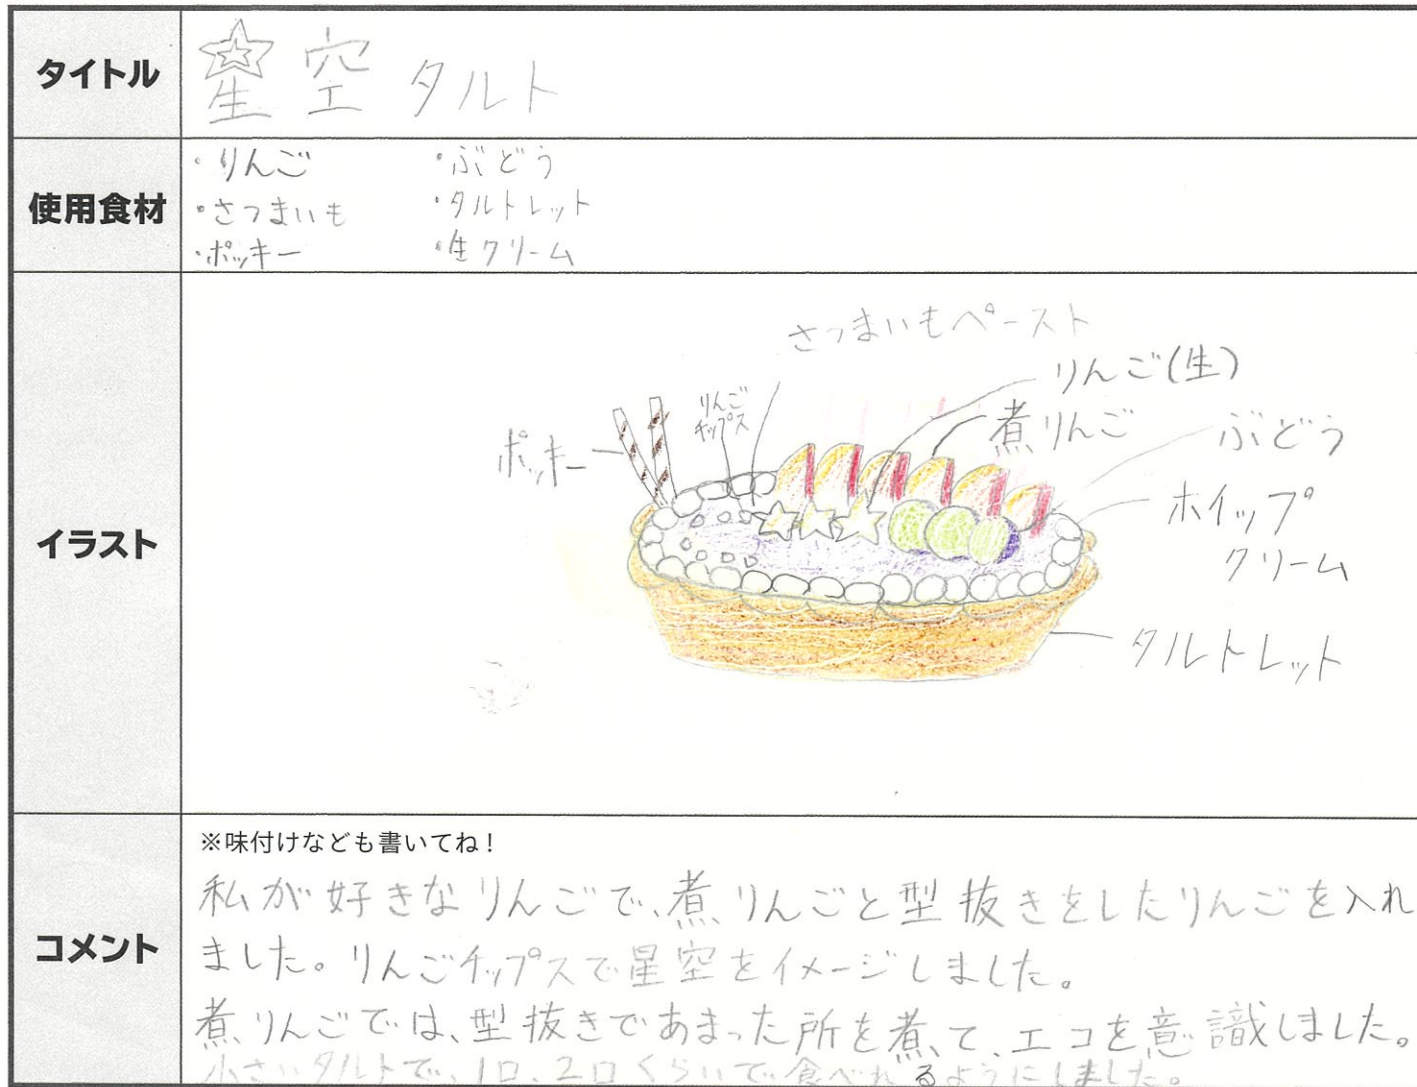 タイトル
星空タルト
使用食材
・りんご ・ぶどう
・さつまいも ・タルトレット
・ポッキー ・生クリーム
イラスト
さつまいもペースト
りんご(生)
りんご
チップス
煮りんご
ぶどう
ポッキー
ホイップ
クリーム
タルトレット
コメント
※味付けなども書いてね！
私が好きなりんごで、煮りんごと型抜きをしたりんごを入れ
ました。りんごチップスで星空をイメージしました。
煮りんごでは、型抜きであまった所を煮て、エコを意識しました。
小さいタルトで、1口、2口くらいで食べれるようにしました。